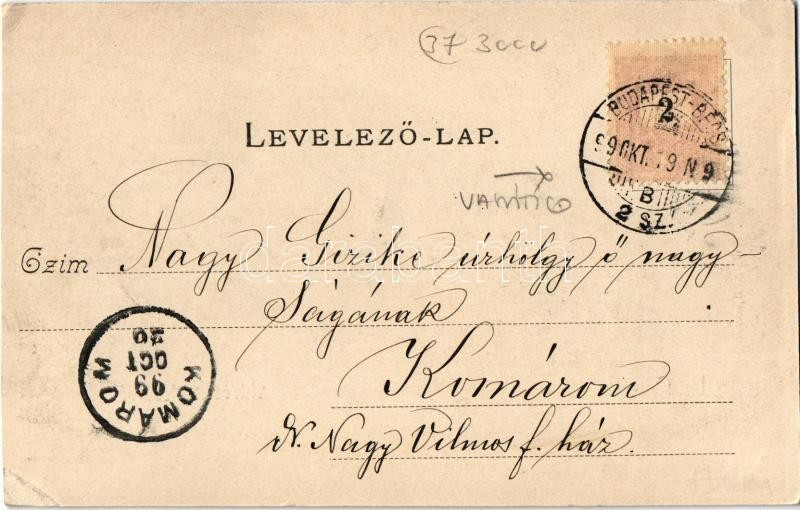 37 3000
LEVELEZŐ-LAP.
2
BUDAPEST-BÉCS
99 OKT. 19 N 9
B
2 SZ.
Czim Nagy Gizike úrhölgy ő nagy-
ságának
Komárom
dr. Nagy Vilmos f. ház.
KOMÁROM
99
OCT
20
darabanth